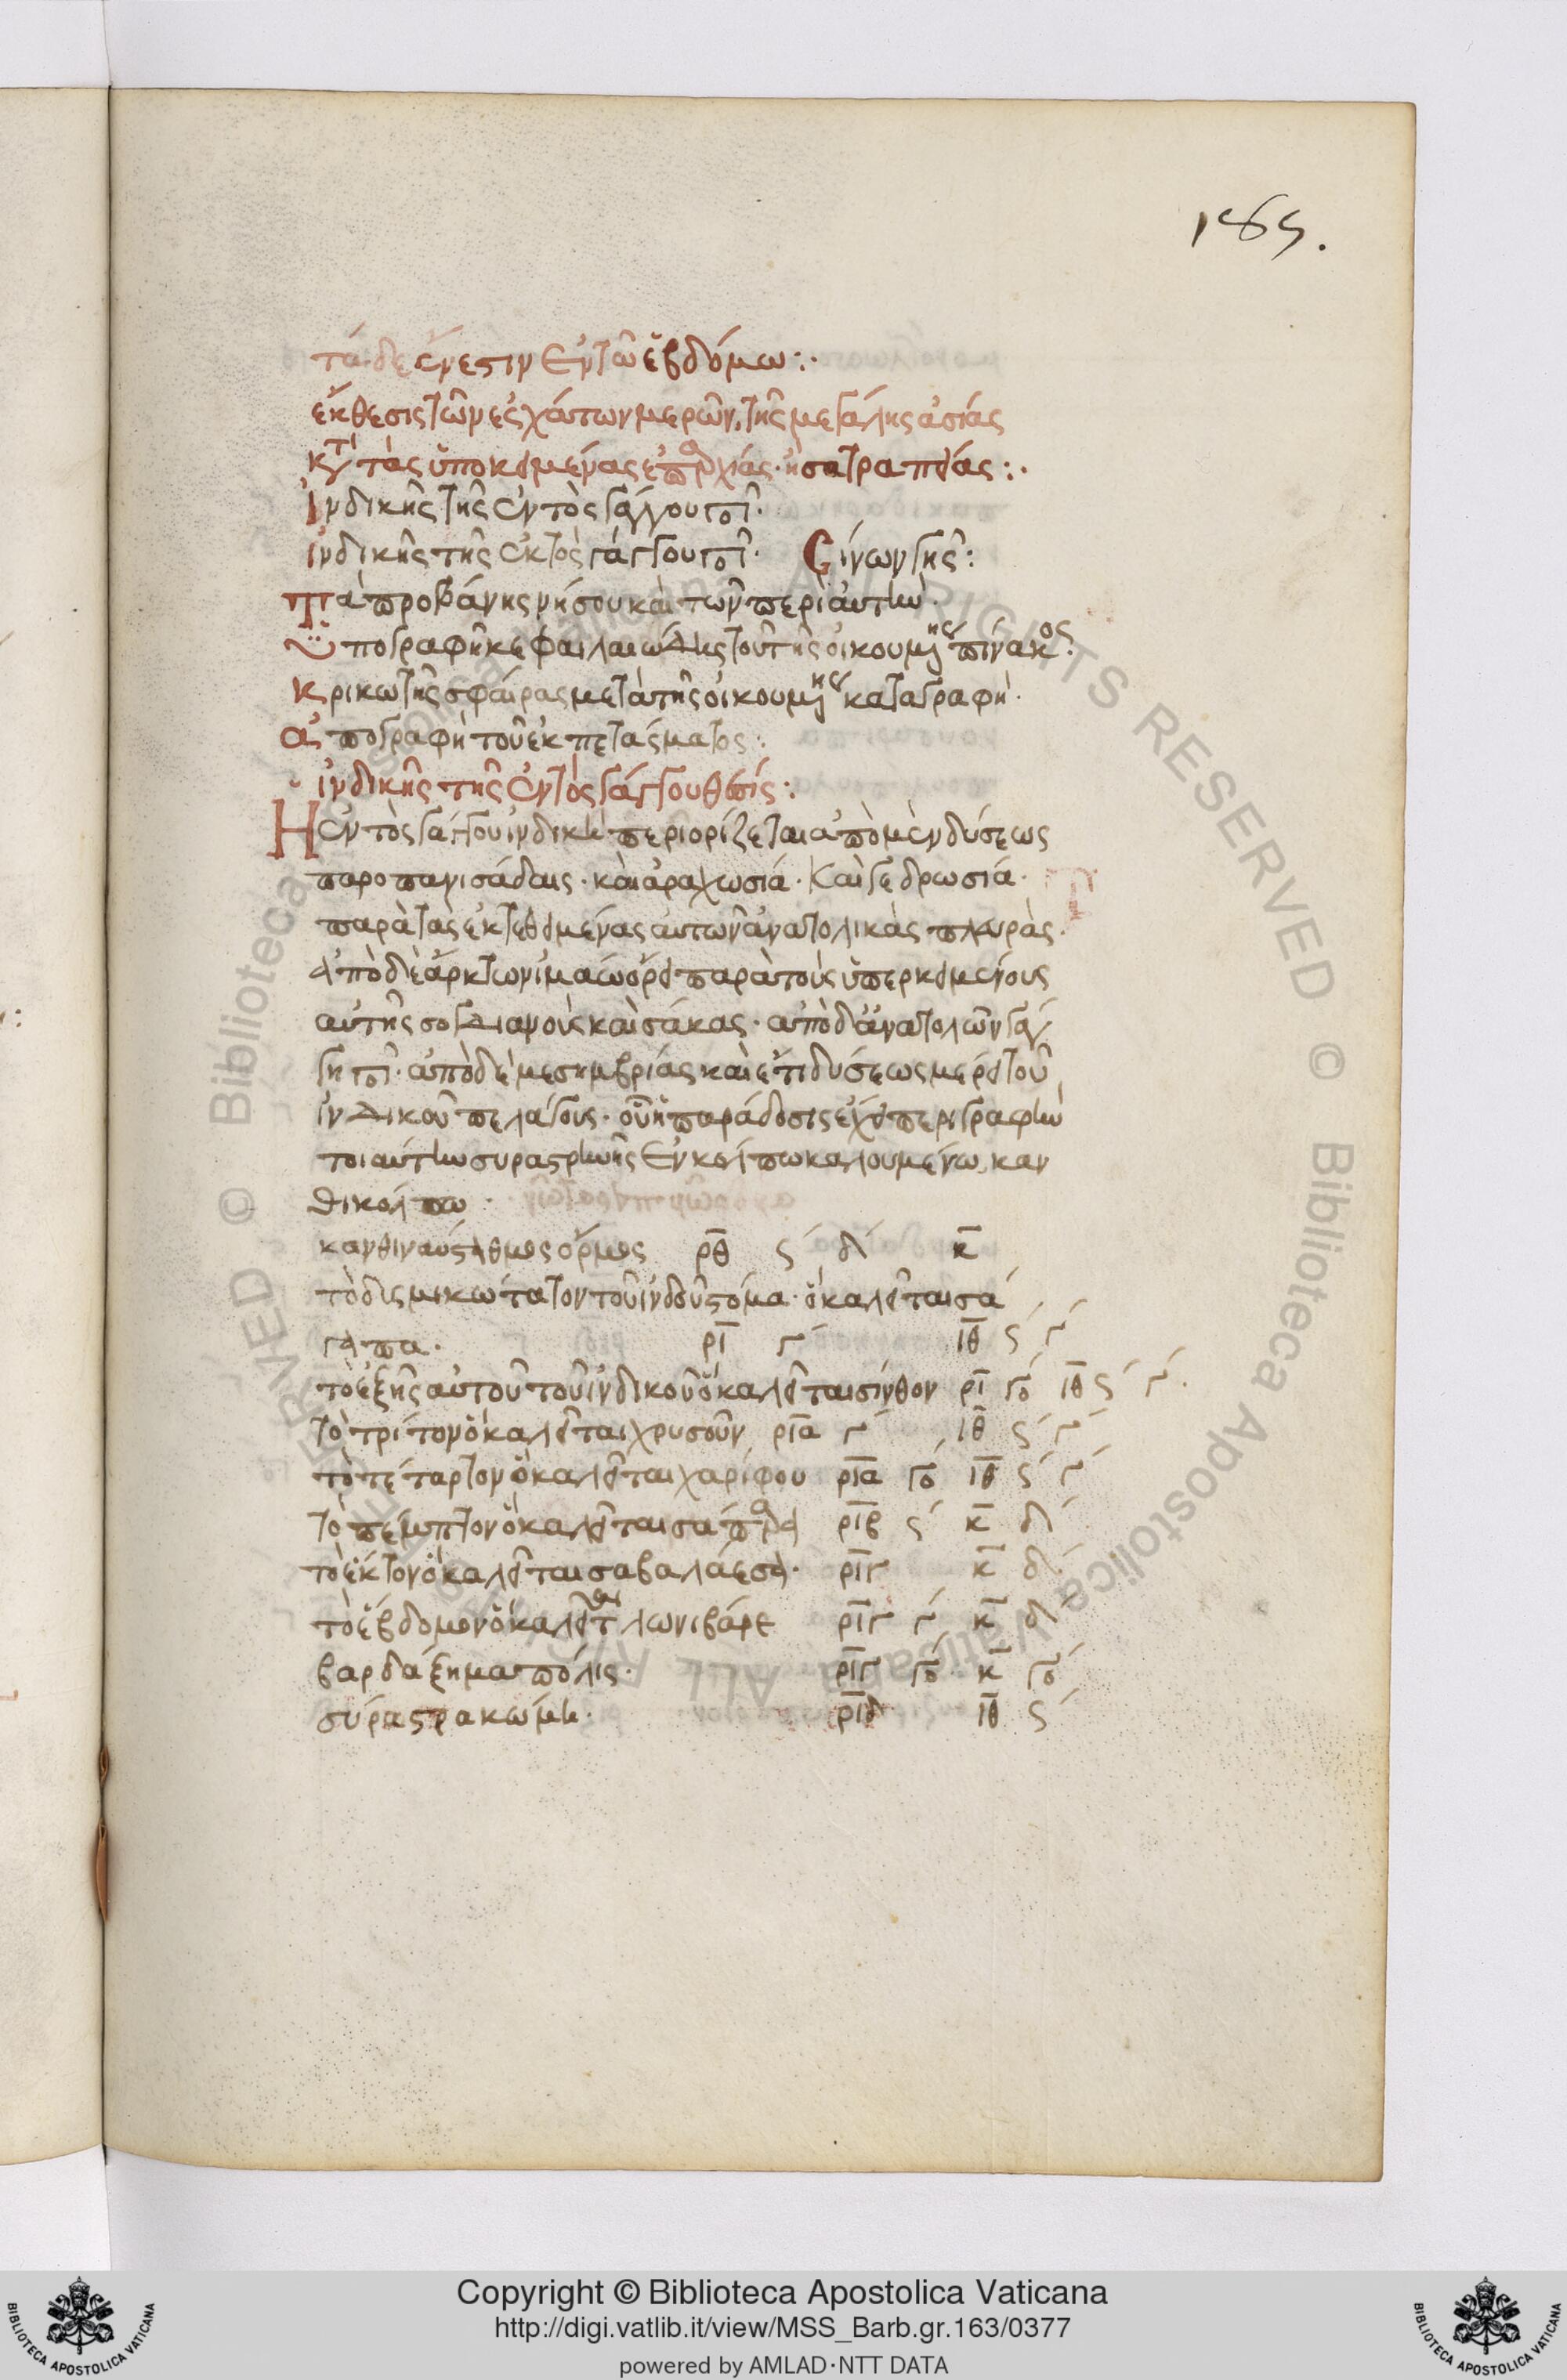 185.
τάδε ἔνεστιν ἐν τῶ ἑβδόμω:·
ἔκθεσις τῶν ἐσχάτων μερῶν, τῆς μεγάλης ἀσίας
τὰς ὑποκειμένας ἐπαρχίας· ἢ σατραπείας:·
Ἰνδικῆς τῆς ἐντὸς γάγγου
ἰνδικῆς τῆς ἐκτὸς γάγγου Σίνων γῆς:
Ταπροβάνης νήσου καὶ τῶν περὶ αὐτὴν.
Ὑπογραφὴ κεφαλαιώδης τοῦ τῆς οἰκουμένης πίνακος.
κρικωτῆς σφαίρας μετὰ τῆς οἰκουμένης καταγραφή.
ἀπογραφὴ τοῦ ἐκπετάσματος:
ἰνδικῆς τῆς ἐντὸς γάγγου θέσις:
Ἡ ἐντὸς γάγγου ἰνδικὴ περιορίζεται ἀπὸ μὲν δύσεως
παροπανισάδαις· καὶ ἀραχωσία· καὶ γεδρωσία·
παρὰ τὰς ἐκτεθειμένας αὐτῶν ἀνατολικὰς πλευρὰς.
ἀπὸ δὲ ἄρκτων ἰμαώω ὄρει παρὰ τοὺς ὑπερκειμένους
αὐτῆς σογδιανοὺς καὶ σάκας· ἀπὸ δὲ ἀνατολῶν γάγ
γη ποταμῶ· ἀπὸ δὲ μεσημβρίας καὶ ἔτι δύσεως μέρει τοῦ
ἰνδικοῦ πελάγους· οὗ ἡ παράδοσις ἔχει περιγραφὴν
τοιαύτην συραστρηνῆς ἐν κόλπω καλουμένω καν
θικόλπω·
κανθιναύσταθμος ὅρμος ρθ ϛ δ κ
τὸ δυσμικώτατον τοῦ ἰνδοῦ στόμα· ὃ καλεῖται σά
γαπα. ρι γ ιθ ϛ γ
τὸ ἑξῆς αὐτοῦ τοῦ ἰνδικοῦ ὃ καλεῖται σίνθον ρι γο ιθ ϛ γ
τὸ τρίτον ὃ καλεῖται χρυσοῦν ρια γ ιθ ϛ γ
τὸ τέταρτον ὃ καλεῖται χαρίφου ρια γο ιθ ϛ γ
τὸ πέμπτον ὃ καλεῖται σάπαρα ριβ ϛ κ δ
τὸ ἕκτον ὃ καλεῖται σαβαλάεσα· ριγ κ δ
τὸ ἕβδομον ὃ καλεῖται λωνιβάρε ριγ γ κ δ
βαρδάξημα πόλις· ριγ γο κ γο
σύραστρα κώμη. ριδ ιθ ϛ
Copyright © Biblioteca Apostolica Vaticana
http://digi.vatlib.it/view/MSS_Barb.gr.163/0377
powered by AMLAD·NTT DATA
BIBLIOTECA APOSTOLICA VATICANA
BIBLIOTECA APOSTOLICA VATICANA